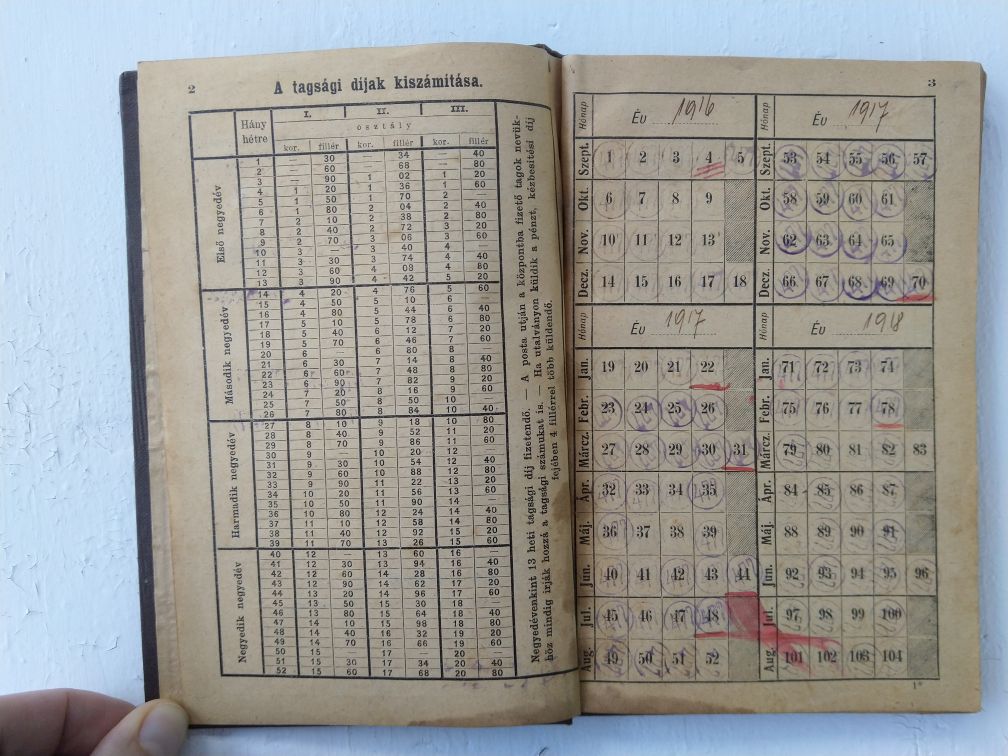 2
A tagsági díjak kiszámítása.
Hány hétre
I. II. III.
osztály
kor. fillér kor. fillér kor. fillér
Első negyedév
1 — 30 — 34 — 40
2 — 60 — 68 — 80
3 — 90 1 02 1 20
4 1 20 1 36 1 60
5 1 50 1 70 2 —
6 1 80 2 04 2 40
7 2 10 2 38 2 80
8 2 40 2 72 3 20
9 2 70 3 06 3 60
10 3 — 3 40 4 —
11 3 30 3 74 4 40
12 3 60 4 08 4 80
13 3 90 4 42 5 20
Második negyedév
14 4 20 4 76 5 60
15 4 50 5 10 6 —
16 4 80 5 44 6 40
17 5 10 5 78 6 80
18 5 40 6 12 7 20
19 5 70 6 46 7 60
20 6 — 6 80 8 —
21 6 30 7 14 8 40
22 6 60 7 48 8 80
23 6 90 7 82 9 20
24 7 20 8 16 9 60
25 7 50 8 50 10 —
26 7 80 8 84 10 40
Harmadik negyedév
27 8 10 9 18 10 80
28 8 40 9 52 11 20
29 8 70 9 86 11 60
30 9 — 10 20 12 —
31 9 30 10 54 12 40
32 9 60 10 88 12 80
33 9 90 11 22 13 20
34 10 20 11 56 13 60
35 10 50 11 90 14 —
36 10 80 12 24 14 40
37 11 10 12 58 14 80
38 11 40 12 92 15 20
39 11 70 13 26 15 60
Negyedik negyedév
40 12 — 13 60 16 —
41 12 30 13 94 16 40
42 12 60 14 28 16 80
43 12 90 14 62 17 20
44 13 20 14 96 17 60
45 13 50 15 30 18 —
46 13 80 15 64 18 40
47 14 10 15 98 18 80
48 14 40 16 32 19 20
49 14 70 16 66 19 60
50 15 — 17 — 20 —
51 15 30 17 34 20 40
52 15 60 17 68 20 80
Negyedévenkint 13 heti tagsági díj fizetendő. — A posta utján a központba fizető tagok nevük-
höz mindig írják hozzá a tagsági számukat is. — Ha utalványon küldik a pénzt, kézbesitési díj
fejében 4 fillérrel több küldendő.
3
Hónap Év 1916
Szept. 1 2 3 4 5
Okt. 6 7 8 9
Nov. 10 11 12 13
Decz. 14 15 16 17 18
Hónap Év 1917
Szept. 53 54 55 56 57
Okt. 58 59 60 61
Nov. 62 63 64 65
Decz. 66 67 68 69 70
Hónap Év 1917
Jan. 19 20 21 22
Febr. 23 24 25 26
Márcz. 27 28 29 30 31
Ápr. 32 33 34 35
Máj. 36 37 38 39
Jun. 40 41 42 43 44
Jul. 45 46 47 48
Aug. 49 50 51 52
Hónap Év 1918
Jan. 71 72 73 74
Febr. 75 76 77 78
Márcz. 79 80 81 82 83
Ápr. 84 85 86 87
Máj. 88 89 90 91
Jun. 92 93 94 95 96
Jul. 97 98 99 100
Aug. 101 102 103 104
1*